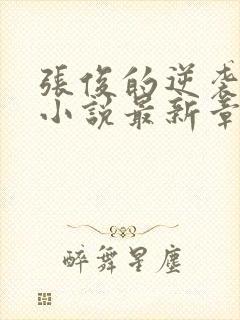 張俊的逆袭
小說最新章
醉舞星塵